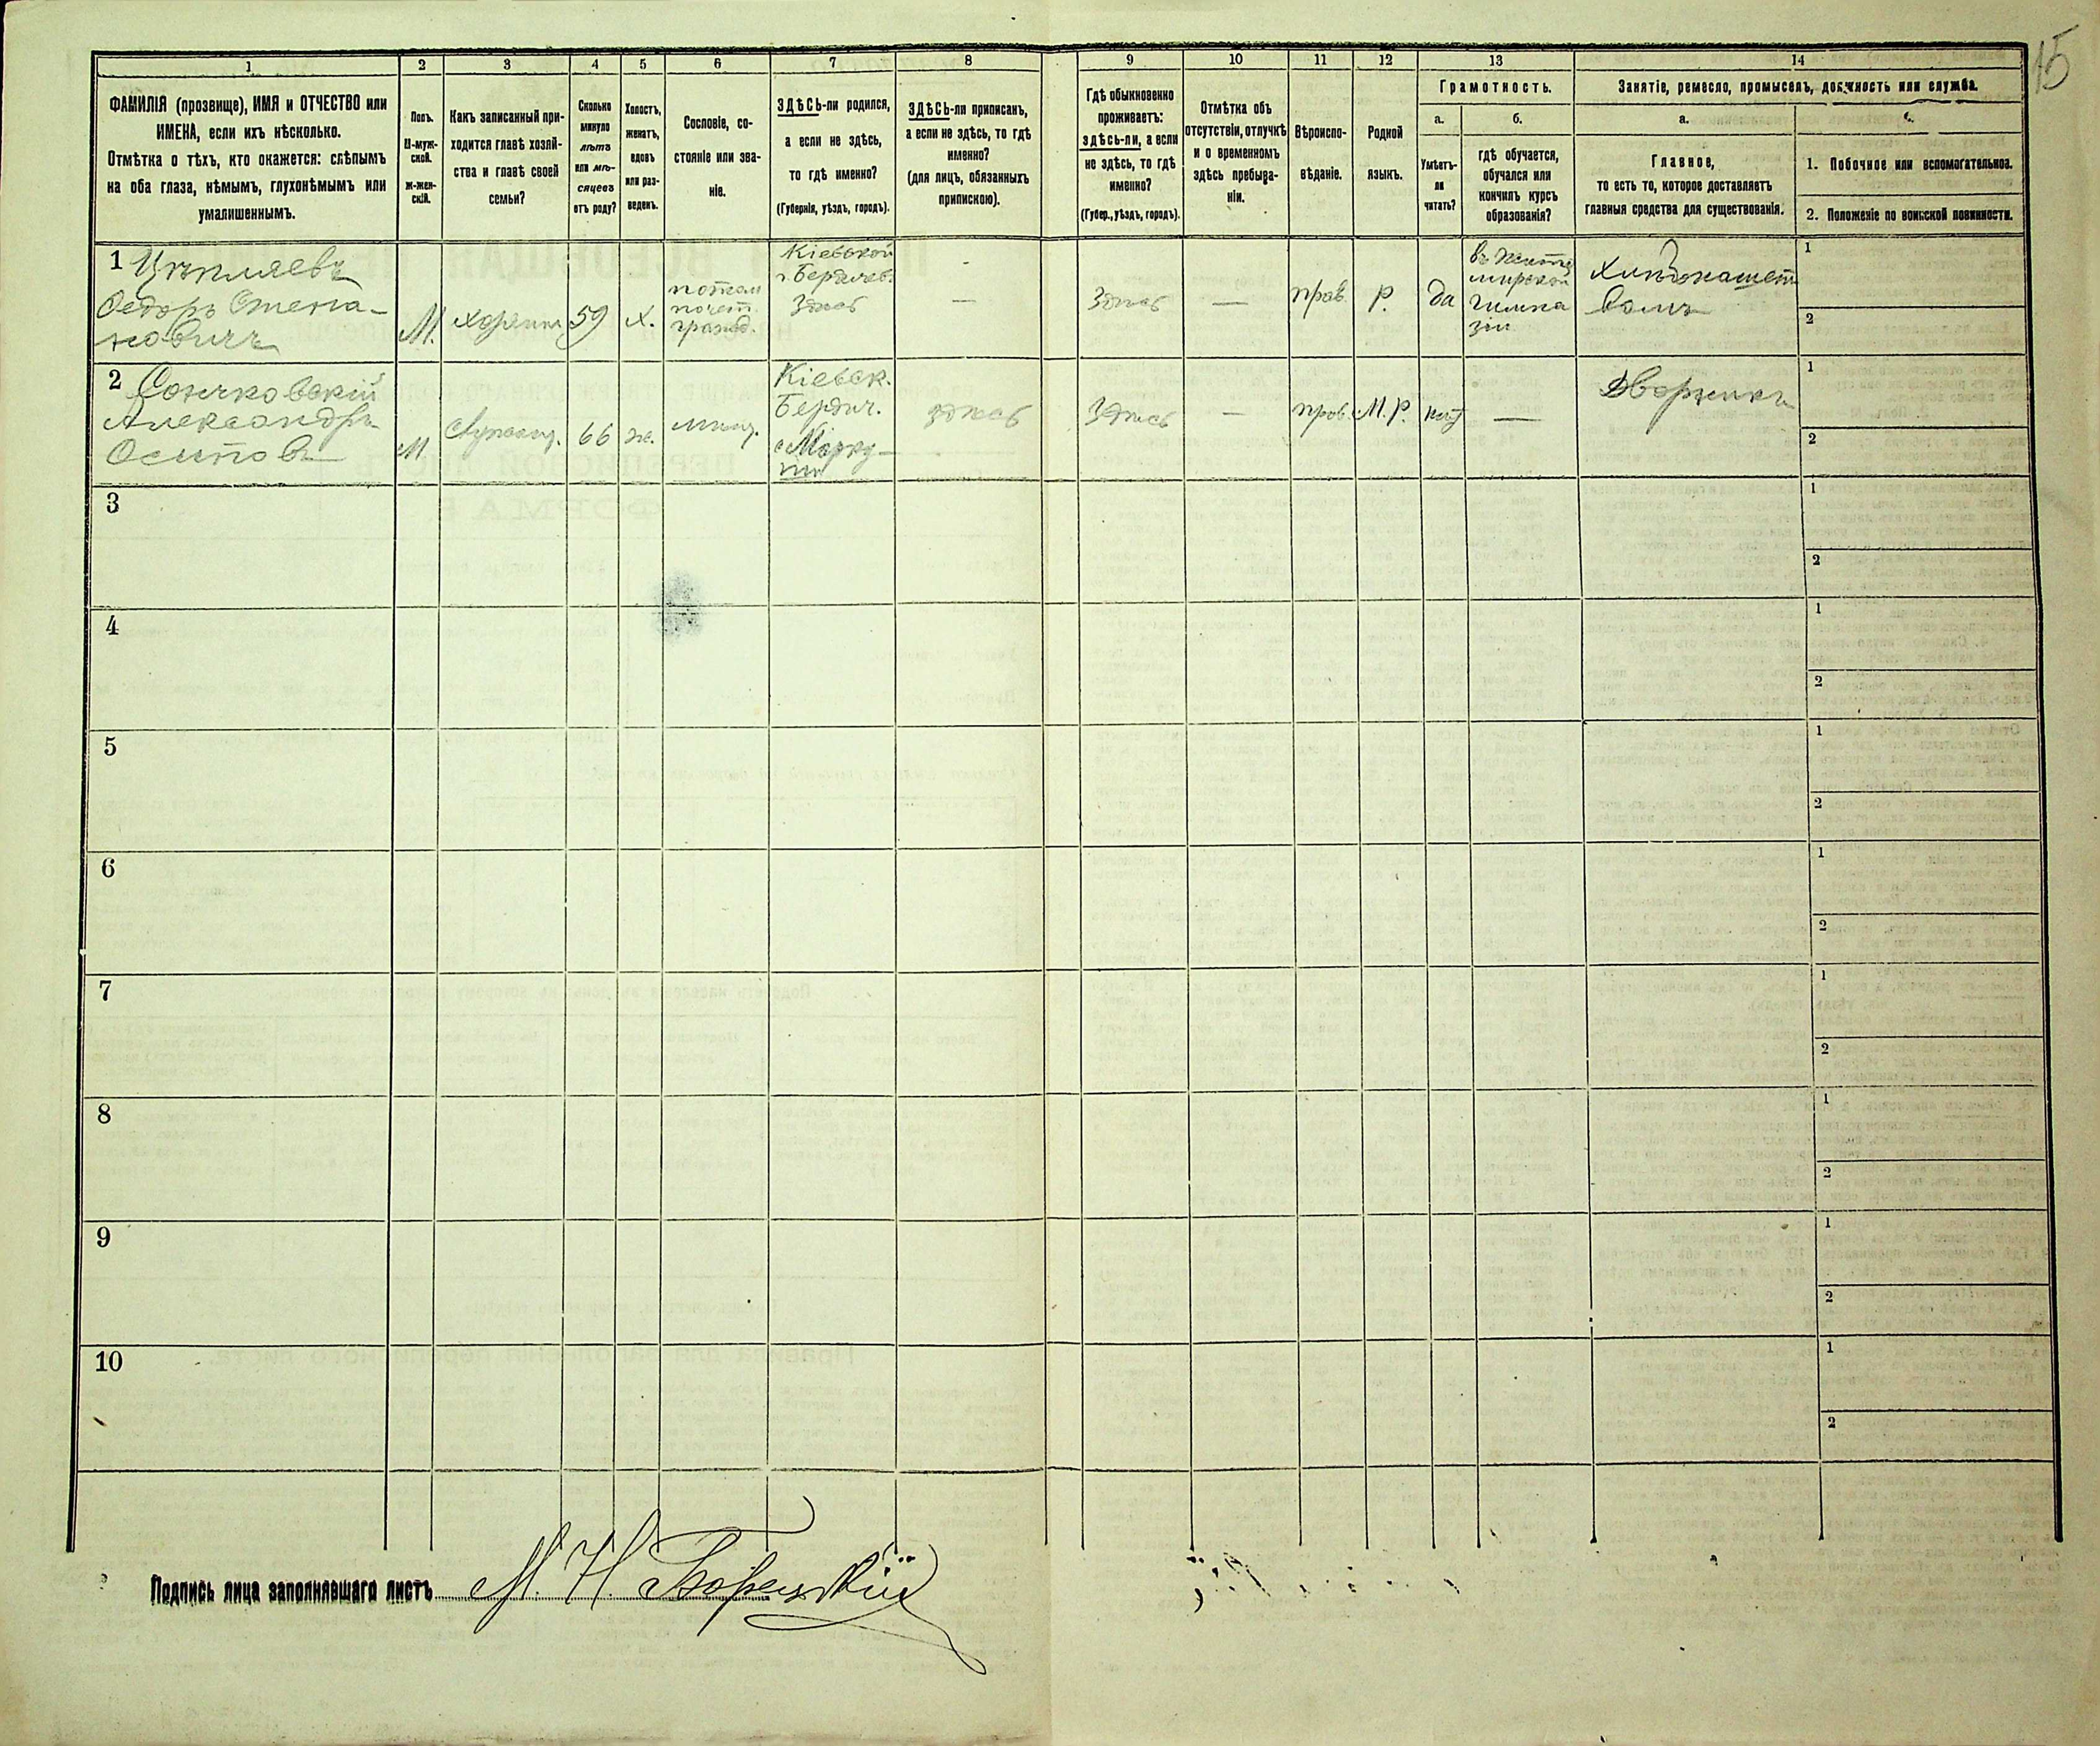 15
1
2
3
4
5
6
7
8
9
10
11
12
13
14
ФАМИЛІЯ (прозвище), ИМЯ и ОТЧЕСТВО или
ИМЕНА, если ихъ нѣсколько.
Отмѣтка о тѣхъ, кто окажется: слѣпымъ
на оба глаза, нѣмымъ, глухонѣмымъ или
умалишеннымъ.
Полъ.
М-муж-
ской.
Ж-жен-
скій.
Какъ записанный при-
ходится главѣ хозяй-
ства и главѣ своей
семьи?
Сколько
минуло
лѣтъ
или мѣ-
сяцевъ
отъ роду?
Холостъ,
женатъ,
вдовъ
или раз-
веденъ.
Сословіе, со-
стояніе или зва-
ніе.
ЗДѢСЬ-ли родился,
а если не здѣсь,
то гдѣ именно?
(Губернія, уѣздъ, городъ).
ЗДѢСЬ-ли приписанъ,
а если не здѣсь, то гдѣ
именно?
(для лицъ, обязанныхъ
припискою).
Гдѣ обыкновенно
проживаетъ:
здѣсь-ли, а если
не здѣсь, то гдѣ
именно?
(Губер., уѣздъ, городъ).
Отмѣтка объ
отсутствіи, отлучкѣ
и о временномъ
здѣсь пребыва-
ніи.
Вѣроиспо-
вѣданіе.
Родной
языкъ.
Грамотность.
а.
Умѣетъ-
ли
читать?
б.
гдѣ обучается,
обучался или
кончилъ курсъ
образованія?
Занятіе, ремесло, промыселъ, должность или служба.
а.
Главное,
то есть то, которое доставляетъ
главныя средства для существованія.
1. Побочное или вспомогательное.
2. Положеніе по воинской повинности.
1
Федоръ Степа-
новичъ
М.
хозяинъ
59
х.
потом.
почет.
гражд.
Кіевской
г. Бердичев.
Здѣсь
—
Здѣсь
—
прав.
Р.
да
въ Жито
мирской
гимна
зіи
1
2
2
Александръ
Осиповъ
М.
66
ж.
мѣщ.
Кіевск.
Бердич.
здѣсь
Здѣсь
—
прав.
М.Р.
нѣт
—
Дворникъ
1
2
3
1
2
4
1
2
5
1
2
6
1
2
7
1
2
8
1
2
9
1
2
10
1
2
Подпись лица заполнявшаго листъ
М. Н.